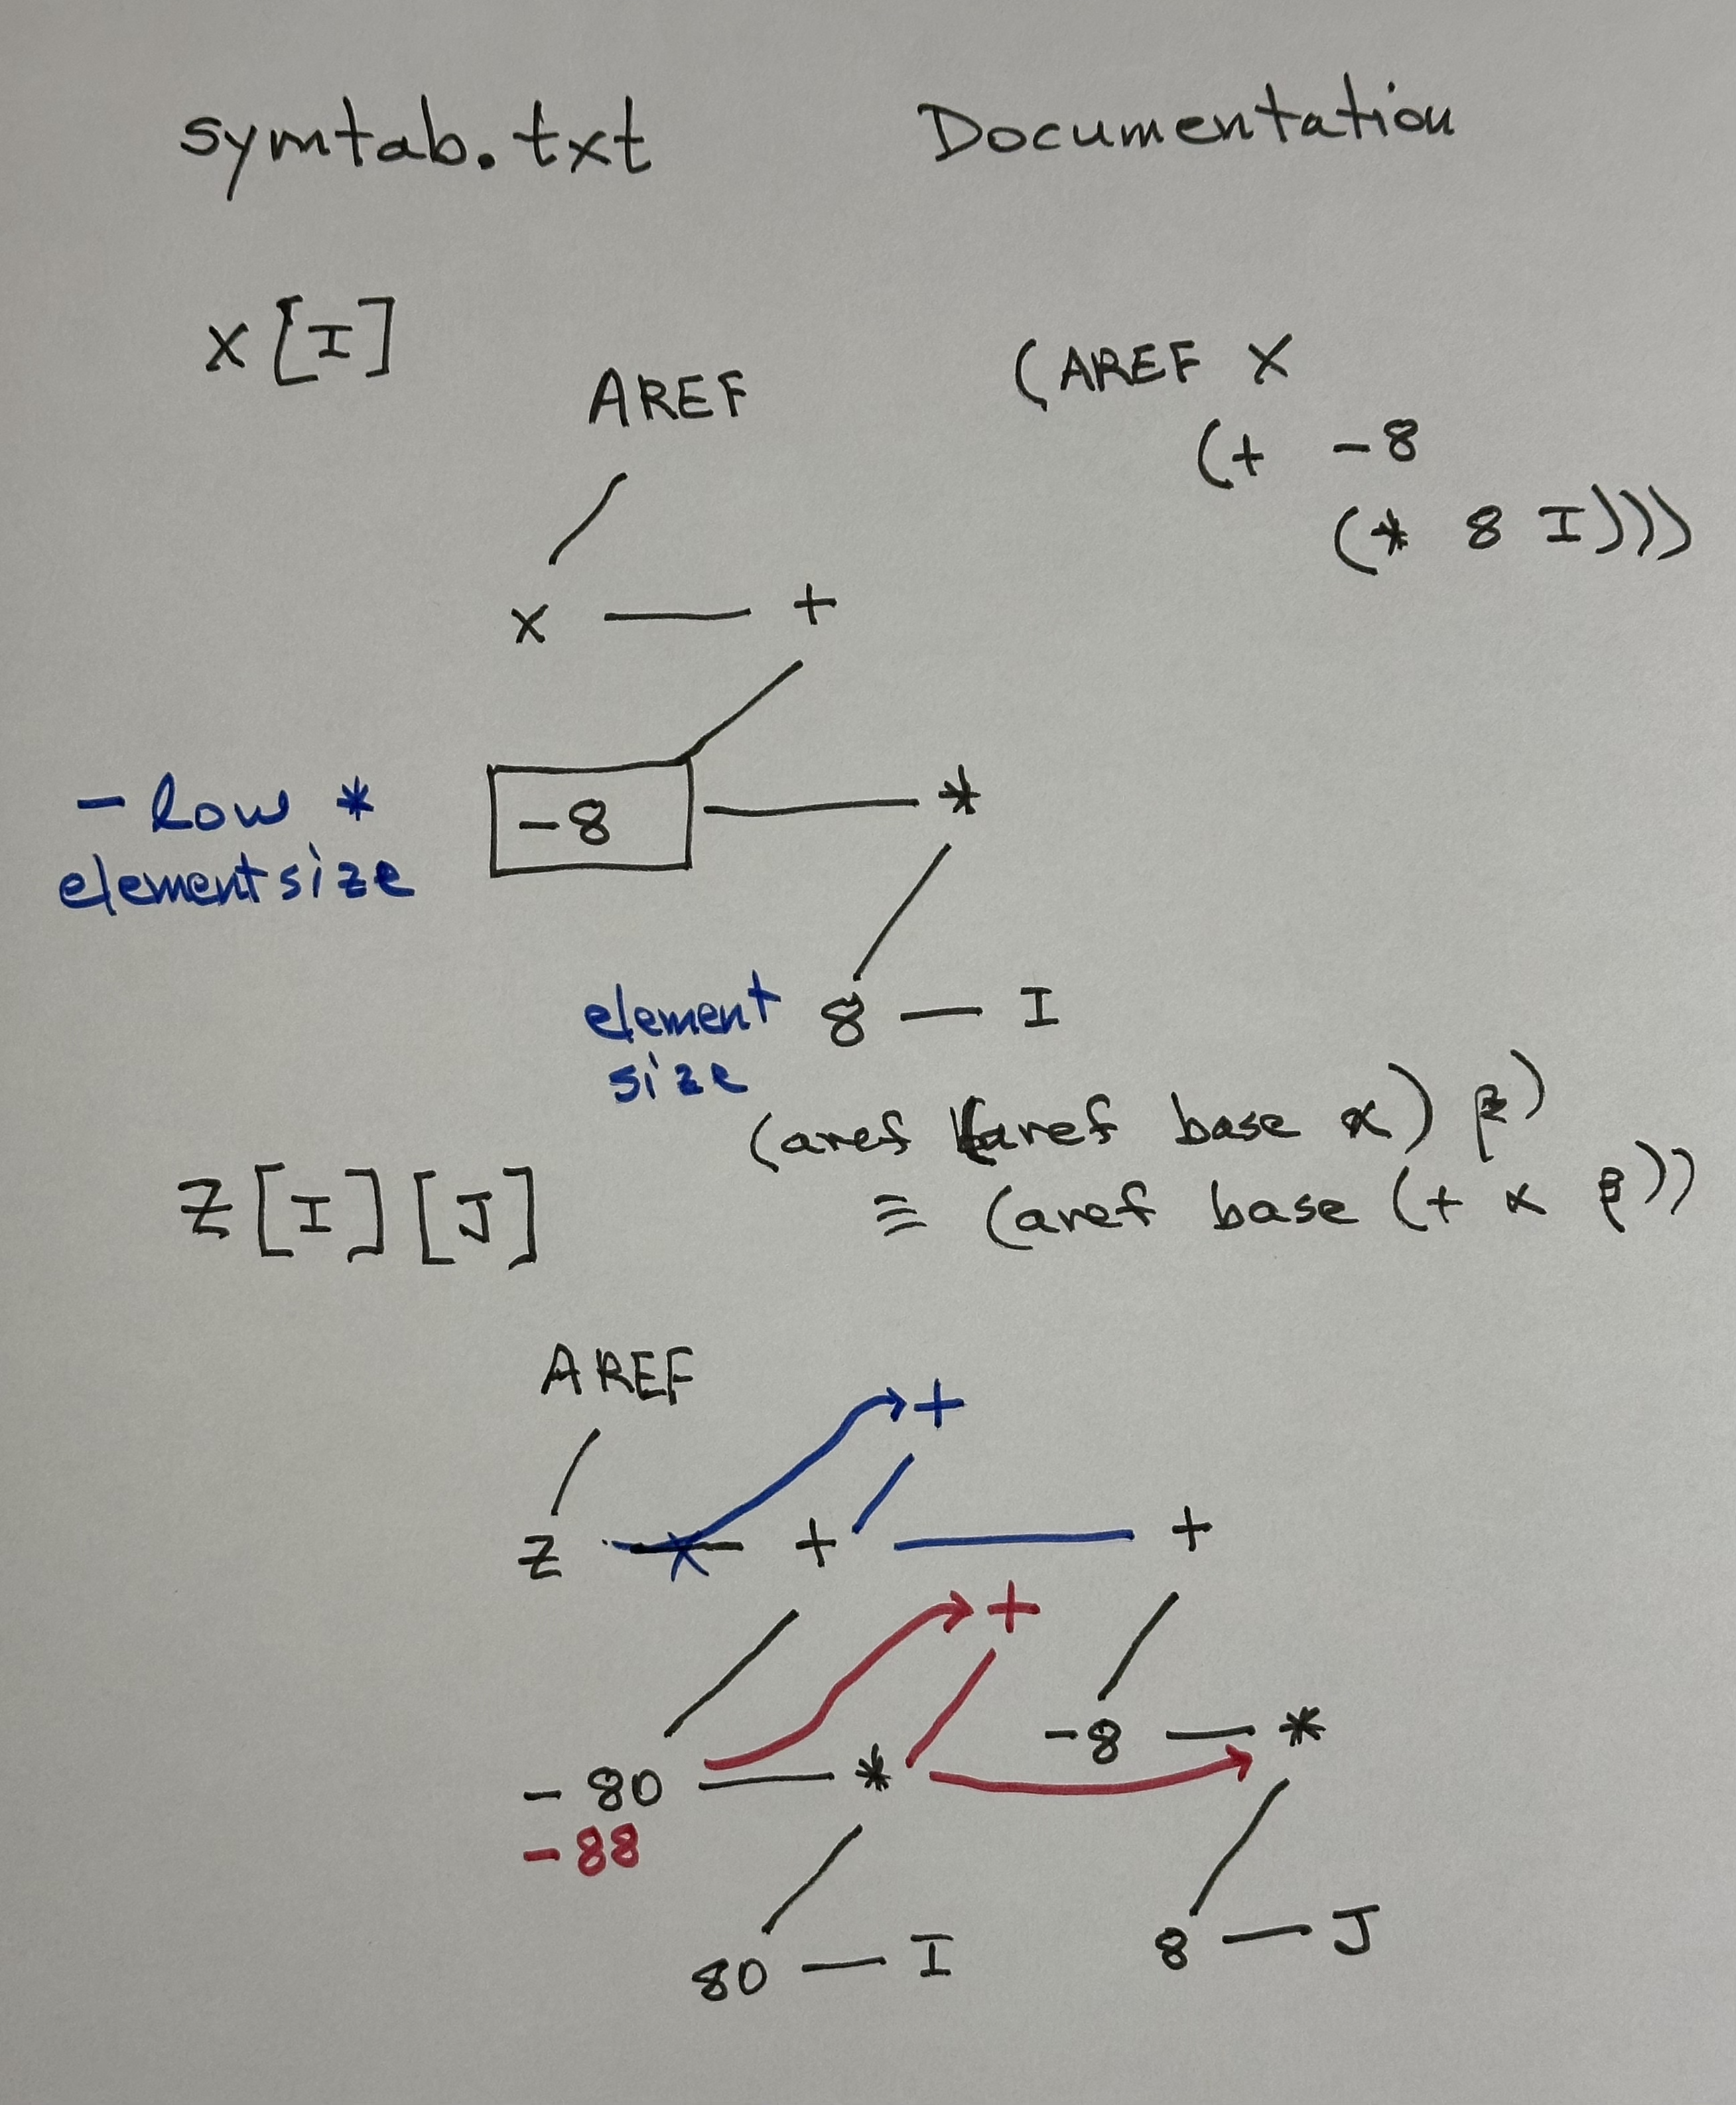 symtab.txt Documentation
X[I]
AREF
(AREF X
(+ -8
(* 8 I)))
X +
- low *
elementsize
-8 *
element
size
8 I
(aref (aref base α) β)
≡ (aref base (+ α β))
Z[I][J]
AREF
+
Z + +
+
-8 *
- 80 *
- 88
80 I
8 J